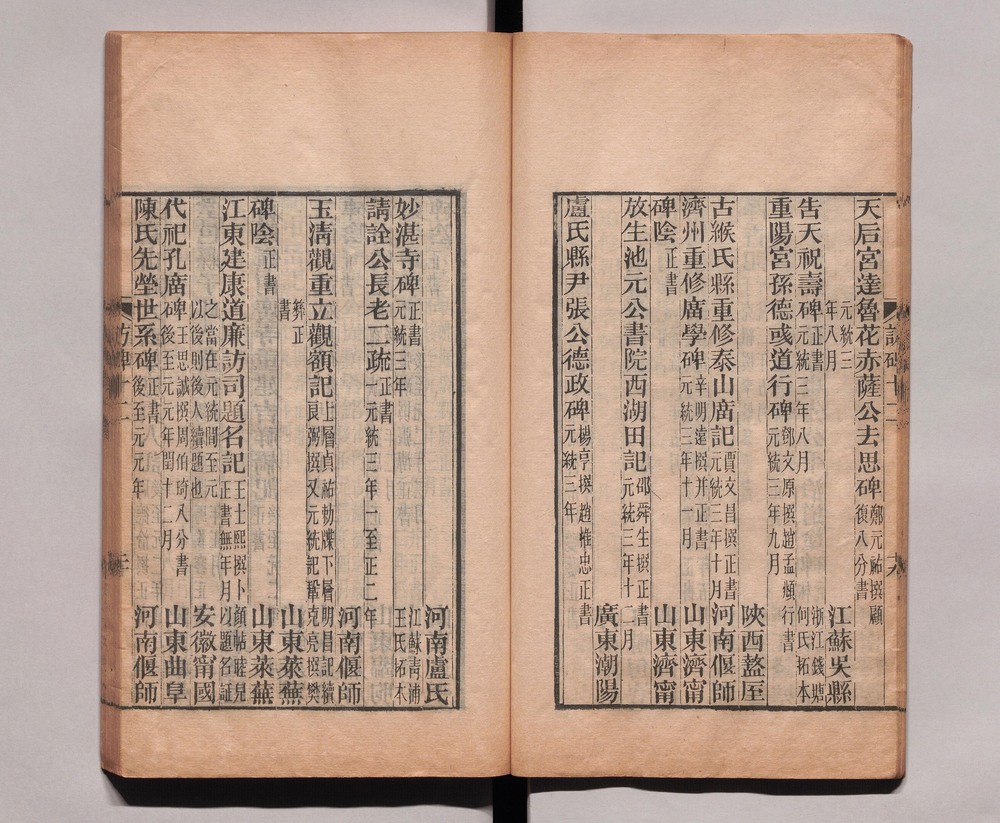 天后宮達魯花赤薩公去思碑鄭元祐撰顧復八分書
元統三年八月
江蘇吳縣
告天祝壽碑正書元統三年八月
浙江錢塘何氏拓本
重陽宮孫德彧道行碑鄧文原撰趙孟頫行書元統三年九月
陝西盩厔
古緱氏縣重修泰山廟記賈文昌撰正書元統三年十月
河南偃師
濟州重修廟學碑辛明遠撰并正書元統三年十一月
山東濟甯
碑陰正書
山東濟甯
放生池元公書院西湖田記邵舜生撰正書元統三年十二月
廣東潮陽
盧氏縣尹張公德政碑楊亨撰趙惟忠正書元統三年
河南盧氏
妙湛寺碑正書元統三年
江蘇青浦王氏拓本
請詮公長老二疏正書一元統三年一至正二年
河南偃師
玉清觀重立觀額記上層貞祐勅牒下層明昌記續良弼撰又元統記鞏克亮撰樊彝正書
山東萊蕪
碑陰正書
山東萊蕪
江東建康道廉訪司題名記王士熙撰正書無年月以題名証之當在元統間至元以後則後人續題也
安徽甯國
代祀孔廟碑王思誠撰周伯琦八分書後至元元年閏十二月
山東曲阜
陳氏先塋世系碑正書後至元元年
河南偃師
訪碑十二